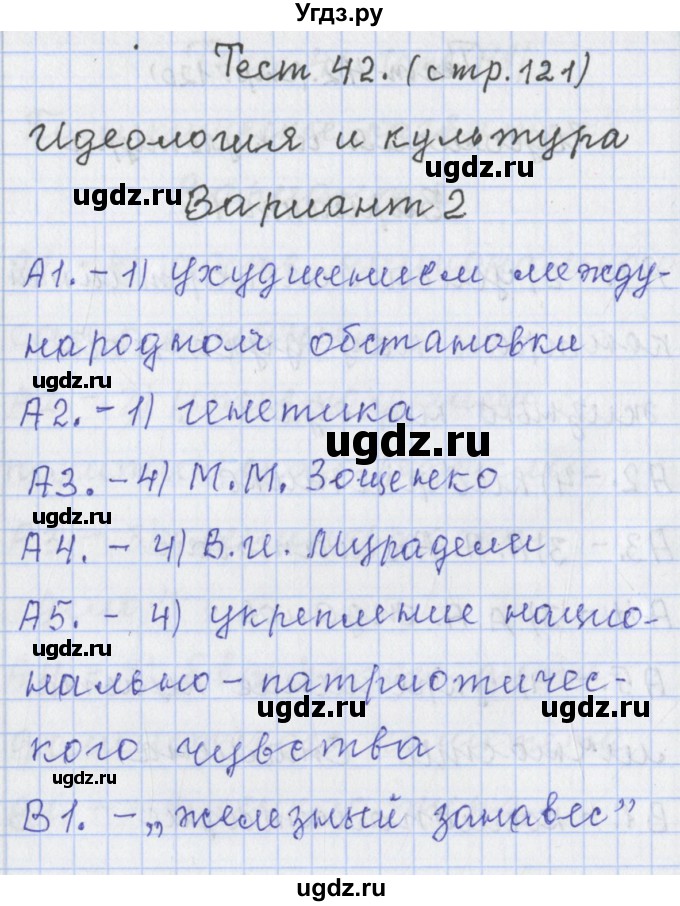 Угдз.ру
Тест 42. (стр. 121)
Идеология и культура
ugdz.ru
ugdz.ru
Вариант 2
А1. - 1) ухудшением между-
народной обстановки
ugdz.ru
А2. - 1) генетика
ugdz.ru
А3. - 4) М.М. Зощенко
ugdz.ru
А4. - 4) В.И. Мурадели
А5. - 4) укрепление нацио-
нально - патриотичес-
ugdz.ru ugdz.ru
кого чувства
ugdz.ru
В1. - „железный занавес”
ugdz.ru
ugdz.ru